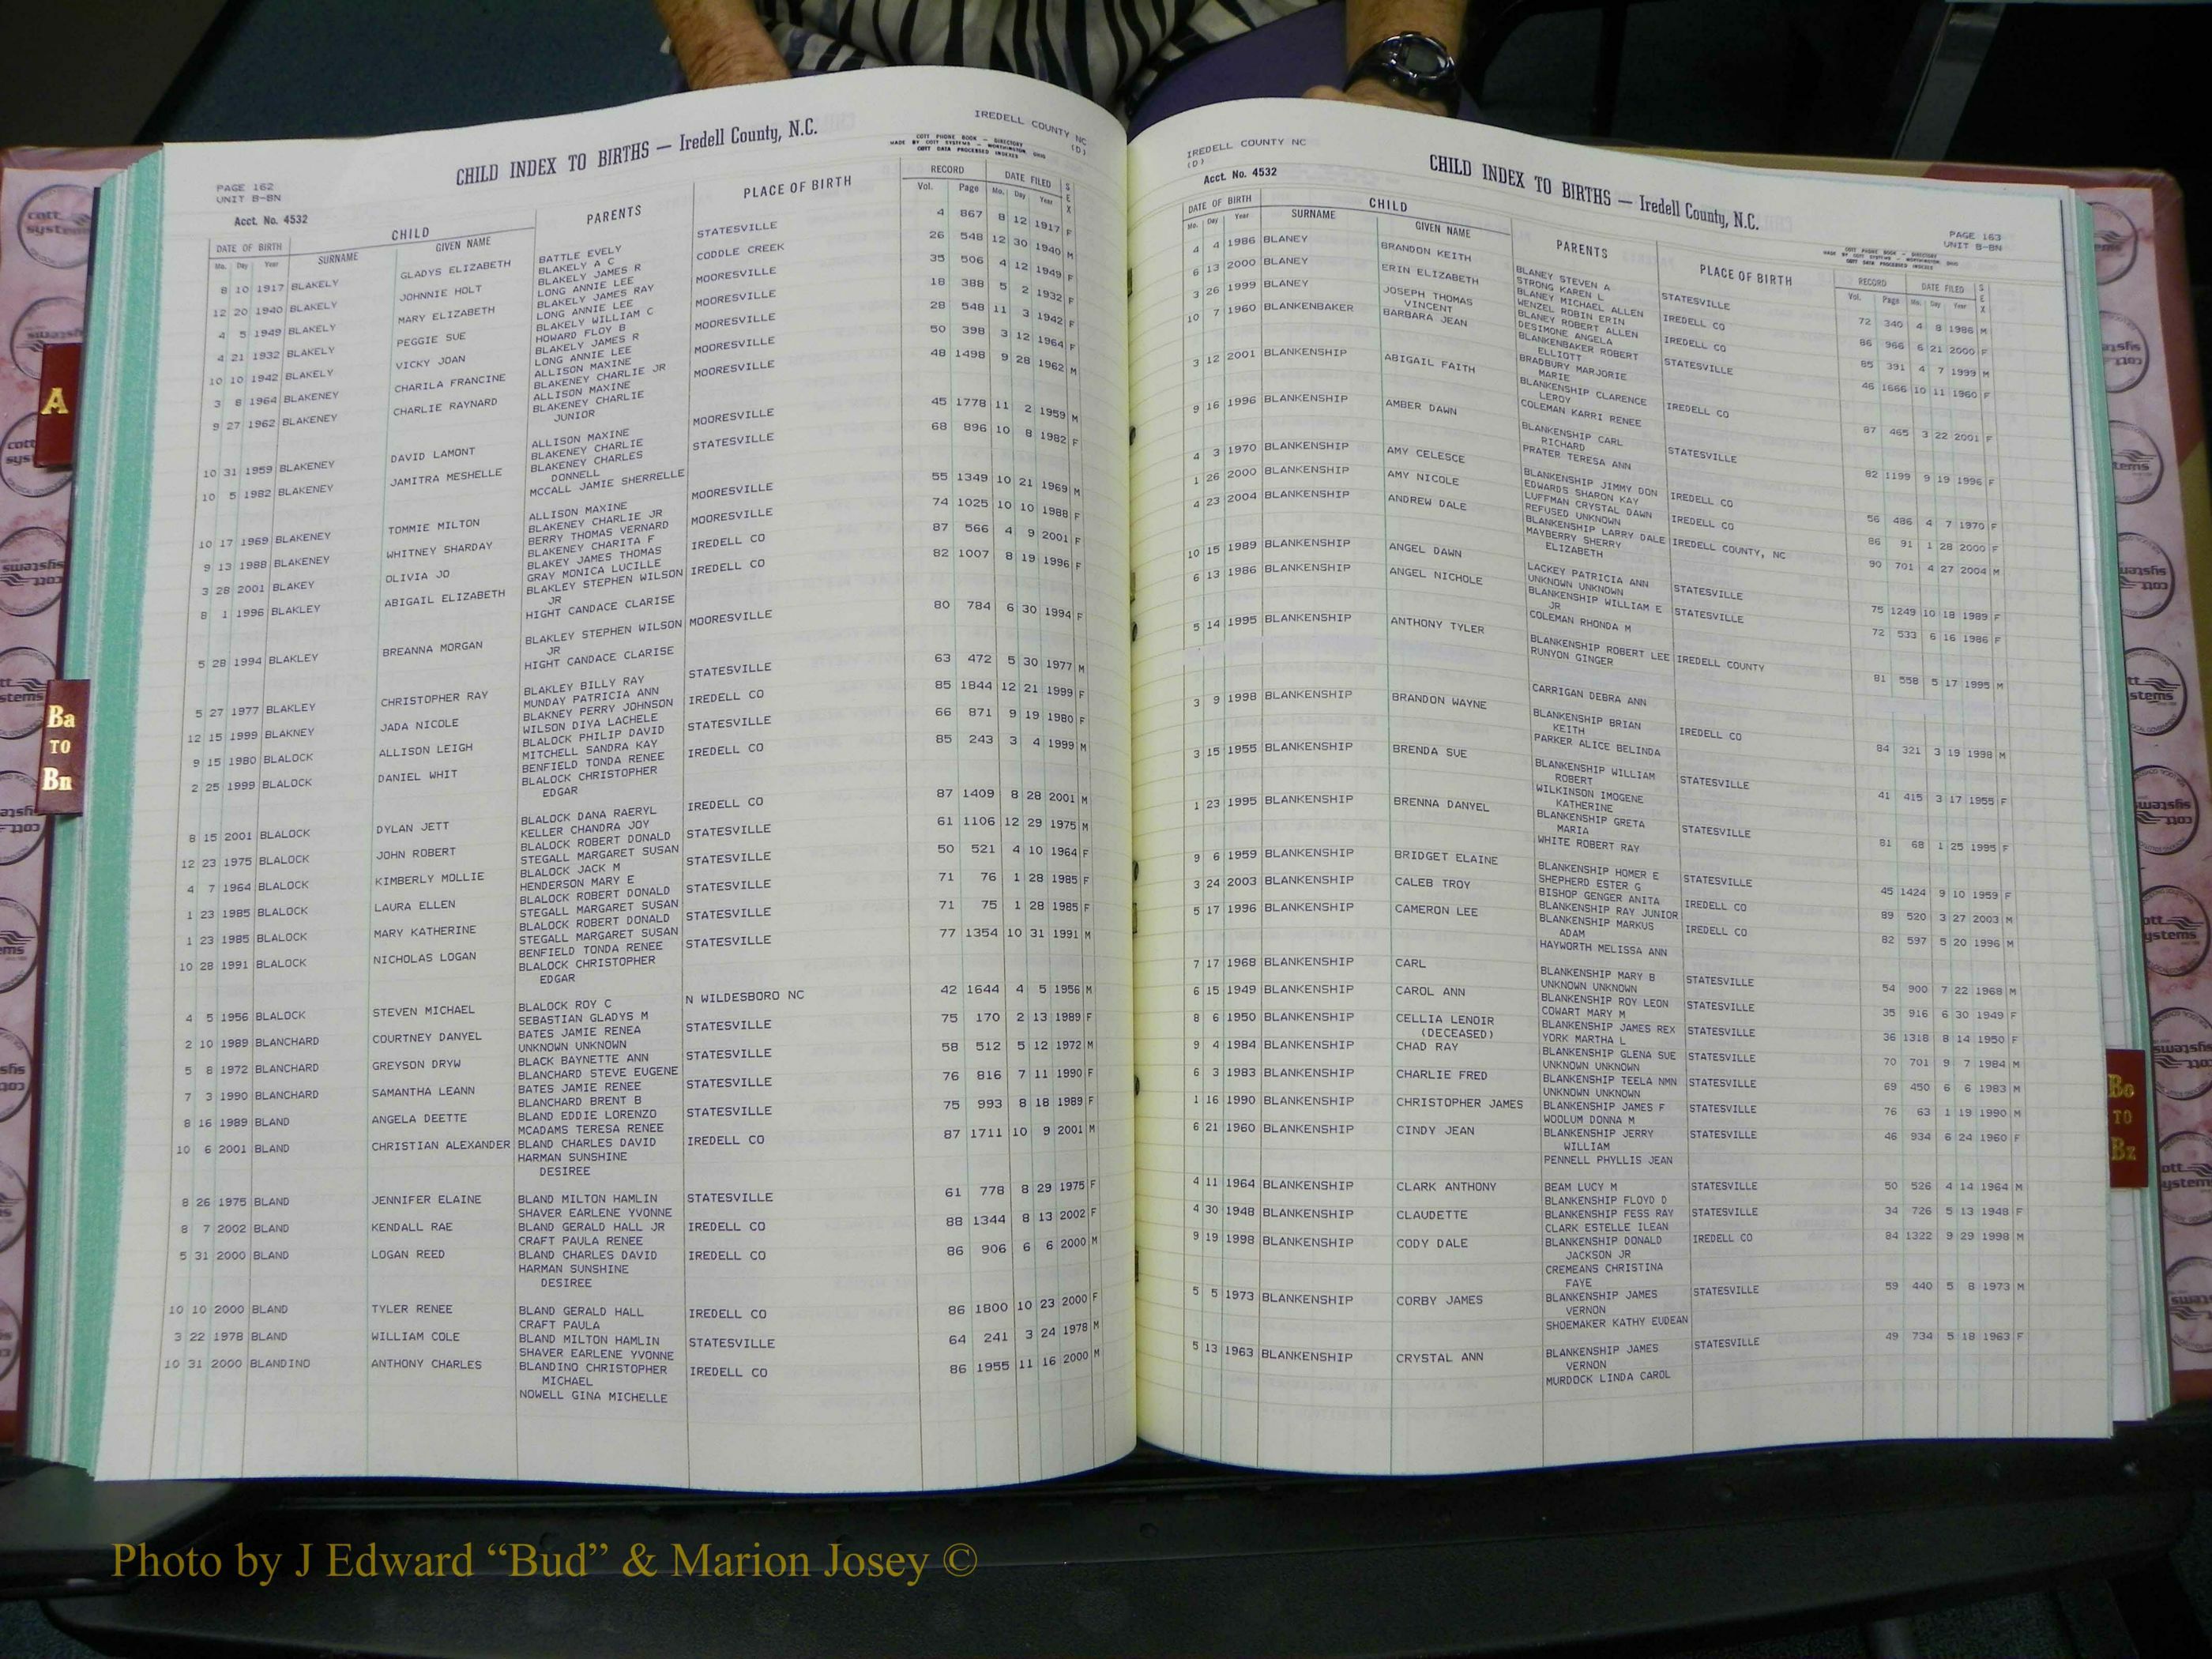 IREDELL COUNTY NC
(D)
CHILD INDEX TO BIRTHS — Iredell County, N.C.
COTT PHONE BOOK — DIRECTORY
MADE BY COTT SYSTEMS — WORTHINGTON, OHIO
COTT DATA PROCESSED INDEXES
PAGE 162
UNIT B-BN
Acct. No. 4532
DATE OF BIRTH CHILD PARENTS PLACE OF BIRTH RECORD DATE FILED SEX
Mo. Day Year SURNAME GIVEN NAME Vol. Page Mo. Day Year
8 10 1917 BLAKELY GLADYS ELIZABETH BATTLE EVELY STATESVILLE 4 867 8 12 1917 F
BLAKELY A C
12 20 1940 BLAKELY JOHNNIE HOLT BLAKELY JAMES R CODDLE CREEK 26 548 12 30 1940 M
LONG ANNIE LEE
4 5 1949 BLAKELY MARY ELIZABETH BLAKELY JAMES RAY MOORESVILLE 35 506 4 12 1949 F
LONG ANNIE LEE
4 21 1932 BLAKELY PEGGIE SUE BLAKELY WILLIAM C MOORESVILLE 18 388 5 2 1932 F
HOWARD FLOY B
10 10 1942 BLAKELY VICKY JOAN BLAKELY JAMES R MOORESVILLE 28 548 11 3 1942 F
LONG ANNIE LEE
3 8 1964 BLAKENEY CHARILA FRANCINE ALLISON MAXINE MOORESVILLE 50 398 3 12 1964 F
BLAKENEY CHARLIE JR
9 27 1962 BLAKENEY CHARLIE RAYNARD ALLISON MAXINE MOORESVILLE 48 1498 9 28 1962 M
BLAKENEY CHARLIE
JUNIOR
10 31 1959 BLAKENEY DAVID LAMONT ALLISON MAXINE MOORESVILLE 45 1778 11 2 1959 M
BLAKENEY CHARLIE
10 5 1982 BLAKENEY JAMITRA MESHELLE BLAKENEY CHARLES STATESVILLE 68 896 10 8 1982 F
DONNELL
MCCALL JAMIE SHERRELLE
10 17 1969 BLAKENEY TOMMIE MILTON ALLISON MAXINE MOORESVILLE 55 1349 10 21 1969 M
BLAKENEY CHARLIE JR
9 13 1988 BLAKENEY WHITNEY SHARDAY BERRY THOMAS VERNARD MOORESVILLE 74 1025 10 10 1988 F
BLAKENEY CHARITA F
3 28 2001 BLAKEY OLIVIA JO BLAKEY JAMES THOMAS IREDELL CO 87 566 4 9 2001 F
GRAY MONICA LUCILLE
8 1 1996 BLAKLEY ABIGAIL ELIZABETH BLAKLEY STEPHEN WILSON IREDELL CO 82 1007 8 19 1996 F
JR
HIGHT CANDACE CLARISE
5 28 1994 BLAKLEY BREANNA MORGAN BLAKLEY STEPHEN WILSON MOORESVILLE 80 784 6 30 1994 F
JR
HIGHT CANDACE CLARISE
5 27 1977 BLAKLEY CHRISTOPHER RAY BLAKLEY BILLY RAY STATESVILLE 63 472 5 30 1977 M
MUNDAY PATRICIA ANN
12 15 1999 BLAKNEY JADA NICOLE BLAKNEY PERRY JOHNSON IREDELL CO 85 1844 12 21 1999 F
WILSON DIYA LACHELE
9 15 1980 BLALOCK ALLISON LEIGH BLALOCK PHILIP DAVID STATESVILLE 66 871 9 19 1980 F
MITCHELL SANDRA KAY
2 25 1999 BLALOCK DANIEL WHIT BENFIELD TONDA RENEE IREDELL CO 85 243 3 4 1999 M
BLALOCK CHRISTOPHER
EDGAR
8 15 2001 BLALOCK DYLAN JETT BLALOCK DANA RAERYL IREDELL CO 87 1409 8 28 2001 M
KELLER CHANDRA JOY
12 23 1975 BLALOCK JOHN ROBERT BLALOCK ROBERT DONALD STATESVILLE 61 1106 12 29 1975 M
STEGALL MARGARET SUSAN
4 7 1964 BLALOCK KIMBERLY MOLLIE BLALOCK JACK M STATESVILLE 50 521 4 10 1964 F
HENDERSON MARY E
1 23 1985 BLALOCK LAURA ELLEN BLALOCK ROBERT DONALD STATESVILLE 71 76 1 28 1985 F
STEGALL MARGARET SUSAN
1 23 1985 BLALOCK MARY KATHERINE BLALOCK ROBERT DONALD STATESVILLE 71 75 1 28 1985 F
STEGALL MARGARET SUSAN
10 28 1991 BLALOCK NICHOLAS LOGAN BENFIELD TONDA RENEE STATESVILLE 77 1354 10 31 1991 M
BLALOCK CHRISTOPHER
EDGAR
4 5 1956 BLALOCK STEVEN MICHAEL BLALOCK ROY C N WILDESBORO NC 42 1644 4 5 1956 M
SEBASTIAN GLADYS M
2 10 1989 BLANCHARD COURTNEY DANYEL BATES JAMIE RENEA STATESVILLE 75 170 2 13 1989 F
UNKNOWN UNKNOWN
5 8 1972 BLANCHARD GREYSON DRYW BLACK BAYNETTE ANN STATESVILLE 58 512 5 12 1972 M
BLANCHARD STEVE EUGENE
7 3 1990 BLANCHARD SAMANTHA LEANN BATES JAMIE RENEE STATESVILLE 76 816 7 11 1990 F
BLANCHARD BRENT B
8 16 1989 BLAND ANGELA DEETTE BLAND EDDIE LORENZO STATESVILLE 75 993 8 18 1989 F
MCADAMS TERESA RENEE
10 6 2001 BLAND CHRISTIAN ALEXANDER BLAND CHARLES DAVID IREDELL CO 87 1711 10 9 2001 M
HARMAN SUNSHINE
DESIREE
8 26 1975 BLAND JENNIFER ELAINE BLAND MILTON HAMLIN STATESVILLE 61 778 8 29 1975 F
SHAVER EARLENE YVONNE
8 7 2002 BLAND KENDALL RAE BLAND GERALD HALL JR IREDELL CO 88 1344 8 13 2002 F
CRAFT PAULA RENEE
5 31 2000 BLAND LOGAN REED BLAND CHARLES DAVID IREDELL CO 86 906 6 6 2000 M
HARMAN SUNSHINE
DESIREE
10 10 2000 BLAND TYLER RENEE BLAND GERALD HALL IREDELL CO 86 1800 10 23 2000 F
CRAFT PAULA
3 22 1978 BLAND WILLIAM COLE BLAND MILTON HAMLIN STATESVILLE 64 241 3 24 1978 M
SHAVER EARLENE YVONNE
10 31 2000 BLANDINO ANTHONY CHARLES BLANDINO CHRISTOPHER IREDELL CO 86 1955 11 16 2000 M
MICHAEL
NOWELL GINA MICHELLE
IREDELL COUNTY NC
(D)
Acct. No. 4532
CHILD INDEX TO BIRTHS — Iredell County, N.C.
PAGE 163
UNIT B-BN
COTT PHONE BOOK — DIRECTORY
MADE BY COTT SYSTEMS — WORTHINGTON, OHIO
COTT DATA PROCESSED INDEXES
DATE OF BIRTH CHILD PARENTS PLACE OF BIRTH RECORD DATE FILED SEX
Mo. Day Year SURNAME GIVEN NAME Vol. Page Mo. Day Year
4 4 1986 BLANEY BRANDON KEITH BLANEY STEVEN A STATESVILLE 72 340 4 8 1986 M
STRONG KAREN L
6 13 2000 BLANEY ERIN ELIZABETH BLANEY MICHAEL ALLEN IREDELL CO 86 966 6 21 2000 F
WENZEL ROBIN ERIN
3 26 1999 BLANEY JOSEPH THOMAS BLANEY ROBERT ALLEN IREDELL CO 85 391 4 7 1999 M
VINCENT DESIMONE ANGELA
10 7 1960 BLANKENBAKER BARBARA JEAN BLANKENBAKER ROBERT STATESVILLE 46 1666 10 11 1960 F
ELLIOTT
BRADBURY MARJORIE
MARIE
3 12 2001 BLANKENSHIP ABIGAIL FAITH BLANKENSHIP CLARENCE IREDELL CO 87 465 3 22 2001 F
LEROY
COLEMAN KARRI RENEE
9 16 1996 BLANKENSHIP AMBER DAWN BLANKENSHIP CARL STATESVILLE 82 1199 9 19 1996 F
RICHARD
PRATER TERESA ANN
4 3 1970 BLANKENSHIP AMY CELESCE BLANKENSHIP JIMMY DON IREDELL CO 56 486 4 7 1970 F
EDWARDS SHARON KAY
1 26 2000 BLANKENSHIP AMY NICOLE LUFFMAN CRYSTAL DAWN IREDELL CO 86 91 1 28 2000 F
REFUSED UNKNOWN
4 23 2004 BLANKENSHIP ANDREW DALE BLANKENSHIP LARRY DALE IREDELL COUNTY, NC 90 701 4 27 2004 M
MAYBERRY SHERRY
ELIZABETH
10 15 1989 BLANKENSHIP ANGEL DAWN LACKEY PATRICIA ANN STATESVILLE 75 1249 10 18 1989 F
UNKNOWN UNKNOWN
6 13 1986 BLANKENSHIP ANGEL NICHOLE BLANKENSHIP WILLIAM E STATESVILLE 72 533 6 16 1986 F
JR
COLEMAN RHONDA M
5 14 1995 BLANKENSHIP ANTHONY TYLER BLANKENSHIP ROBERT LEE IREDELL COUNTY 81 558 5 17 1995 M
RUNYON GINGER
CARRIGAN DEBRA ANN
3 9 1998 BLANKENSHIP BRANDON WAYNE BLANKENSHIP BRIAN IREDELL CO 84 321 3 19 1998 M
KEITH
PARKER ALICE BELINDA
3 15 1955 BLANKENSHIP BRENDA SUE BLANKENSHIP WILLIAM STATESVILLE 41 415 3 17 1955 F
ROBERT
WILKINSON IMOGENE
KATHERINE
1 23 1995 BLANKENSHIP BRENNA DANYEL BLANKENSHIP GRETA STATESVILLE 81 68 1 25 1995 F
MARIA
WHITE ROBERT RAY
9 6 1959 BLANKENSHIP BRIDGET ELAINE BLANKENSHIP HOMER E STATESVILLE 45 1424 9 10 1959 F
SHEPHERD ESTER G
3 24 2003 BLANKENSHIP CALEB TROY BISHOP GENGER ANITA IREDELL CO 89 520 3 27 2003 M
BLANKENSHIP RAY JUNIOR
5 17 1996 BLANKENSHIP CAMERON LEE BLANKENSHIP MARKUS IREDELL CO 82 597 5 20 1996 M
ADAM
HAYWORTH MELISSA ANN
7 17 1968 BLANKENSHIP CARL BLANKENSHIP MARY B STATESVILLE 54 900 7 22 1968 M
UNKNOWN UNKNOWN
6 15 1949 BLANKENSHIP CAROL ANN BLANKENSHIP ROY LEON STATESVILLE 35 916 6 30 1949 F
COWART MARY M
8 6 1950 BLANKENSHIP CELLIA LENOIR BLANKENSHIP JAMES REX STATESVILLE 36 1318 8 14 1950 F
(DECEASED) YORK MARTHA L
9 4 1984 BLANKENSHIP CHAD RAY BLANKENSHIP GLENA SUE STATESVILLE 70 701 9 7 1984 M
UNKNOWN UNKNOWN
6 3 1983 BLANKENSHIP CHARLIE FRED BLANKENSHIP TEELA NMN STATESVILLE 69 450 6 6 1983 M
UNKNOWN UNKNOWN
1 16 1990 BLANKENSHIP CHRISTOPHER JAMES BLANKENSHIP JAMES F STATESVILLE 76 63 1 19 1990 M
WOOLUM DONNA M
6 21 1960 BLANKENSHIP CINDY JEAN BLANKENSHIP JERRY STATESVILLE 46 934 6 24 1960 F
WILLIAM
PENNELL PHYLLIS JEAN
4 11 1964 BLANKENSHIP CLARK ANTHONY BEAM LUCY M STATESVILLE 50 526 4 14 1964 M
BLANKENSHIP FLOYD D
4 30 1948 BLANKENSHIP CLAUDETTE BLANKENSHIP FESS RAY STATESVILLE 34 726 5 13 1948 F
CLARK ESTELLE ILEAN
9 19 1998 BLANKENSHIP CODY DALE BLANKENSHIP DONALD IREDELL CO 84 1322 9 29 1998 M
JACKSON JR
CREMEANS CHRISTINA
FAYE
5 5 1973 BLANKENSHIP CORBY JAMES BLANKENSHIP JAMES STATESVILLE 59 440 5 8 1973 M
VERNON
SHOEMAKER KATHY EUDEAN
5 13 1963 BLANKENSHIP CRYSTAL ANN BLANKENSHIP JAMES STATESVILLE 49 734 5 18 1963 F
VERNON
MURDOCK LINDA CAROL
A
Ba
TO
Bn
Bo
TO
Bz
cott
systems
Photo by J Edward “Bud” & Marion Josey ©